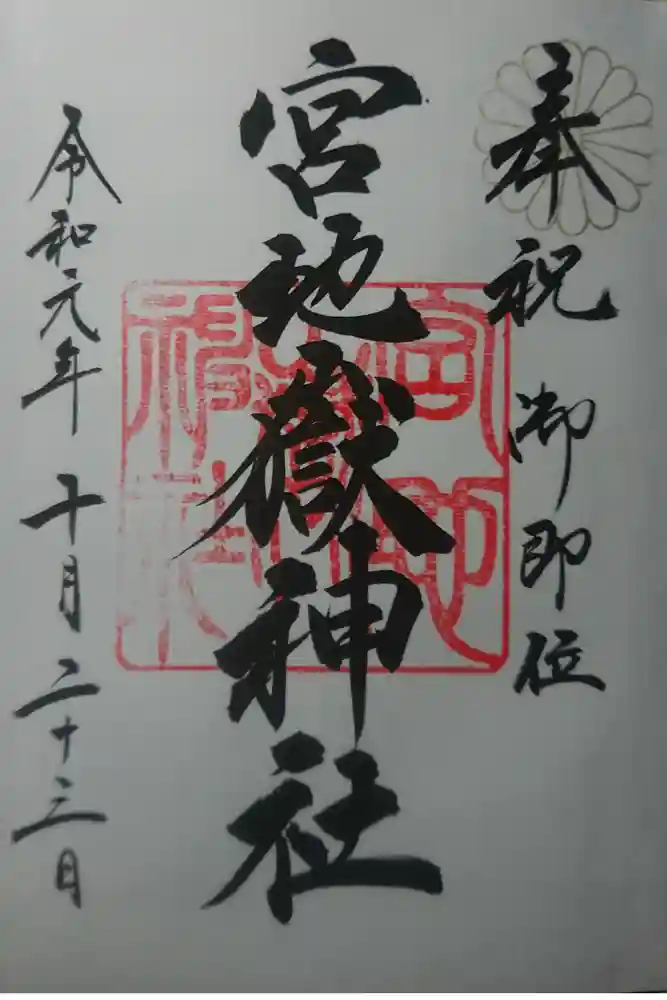 奉祝 御即位
宮地嶽神社
令和元年 十月二十三日